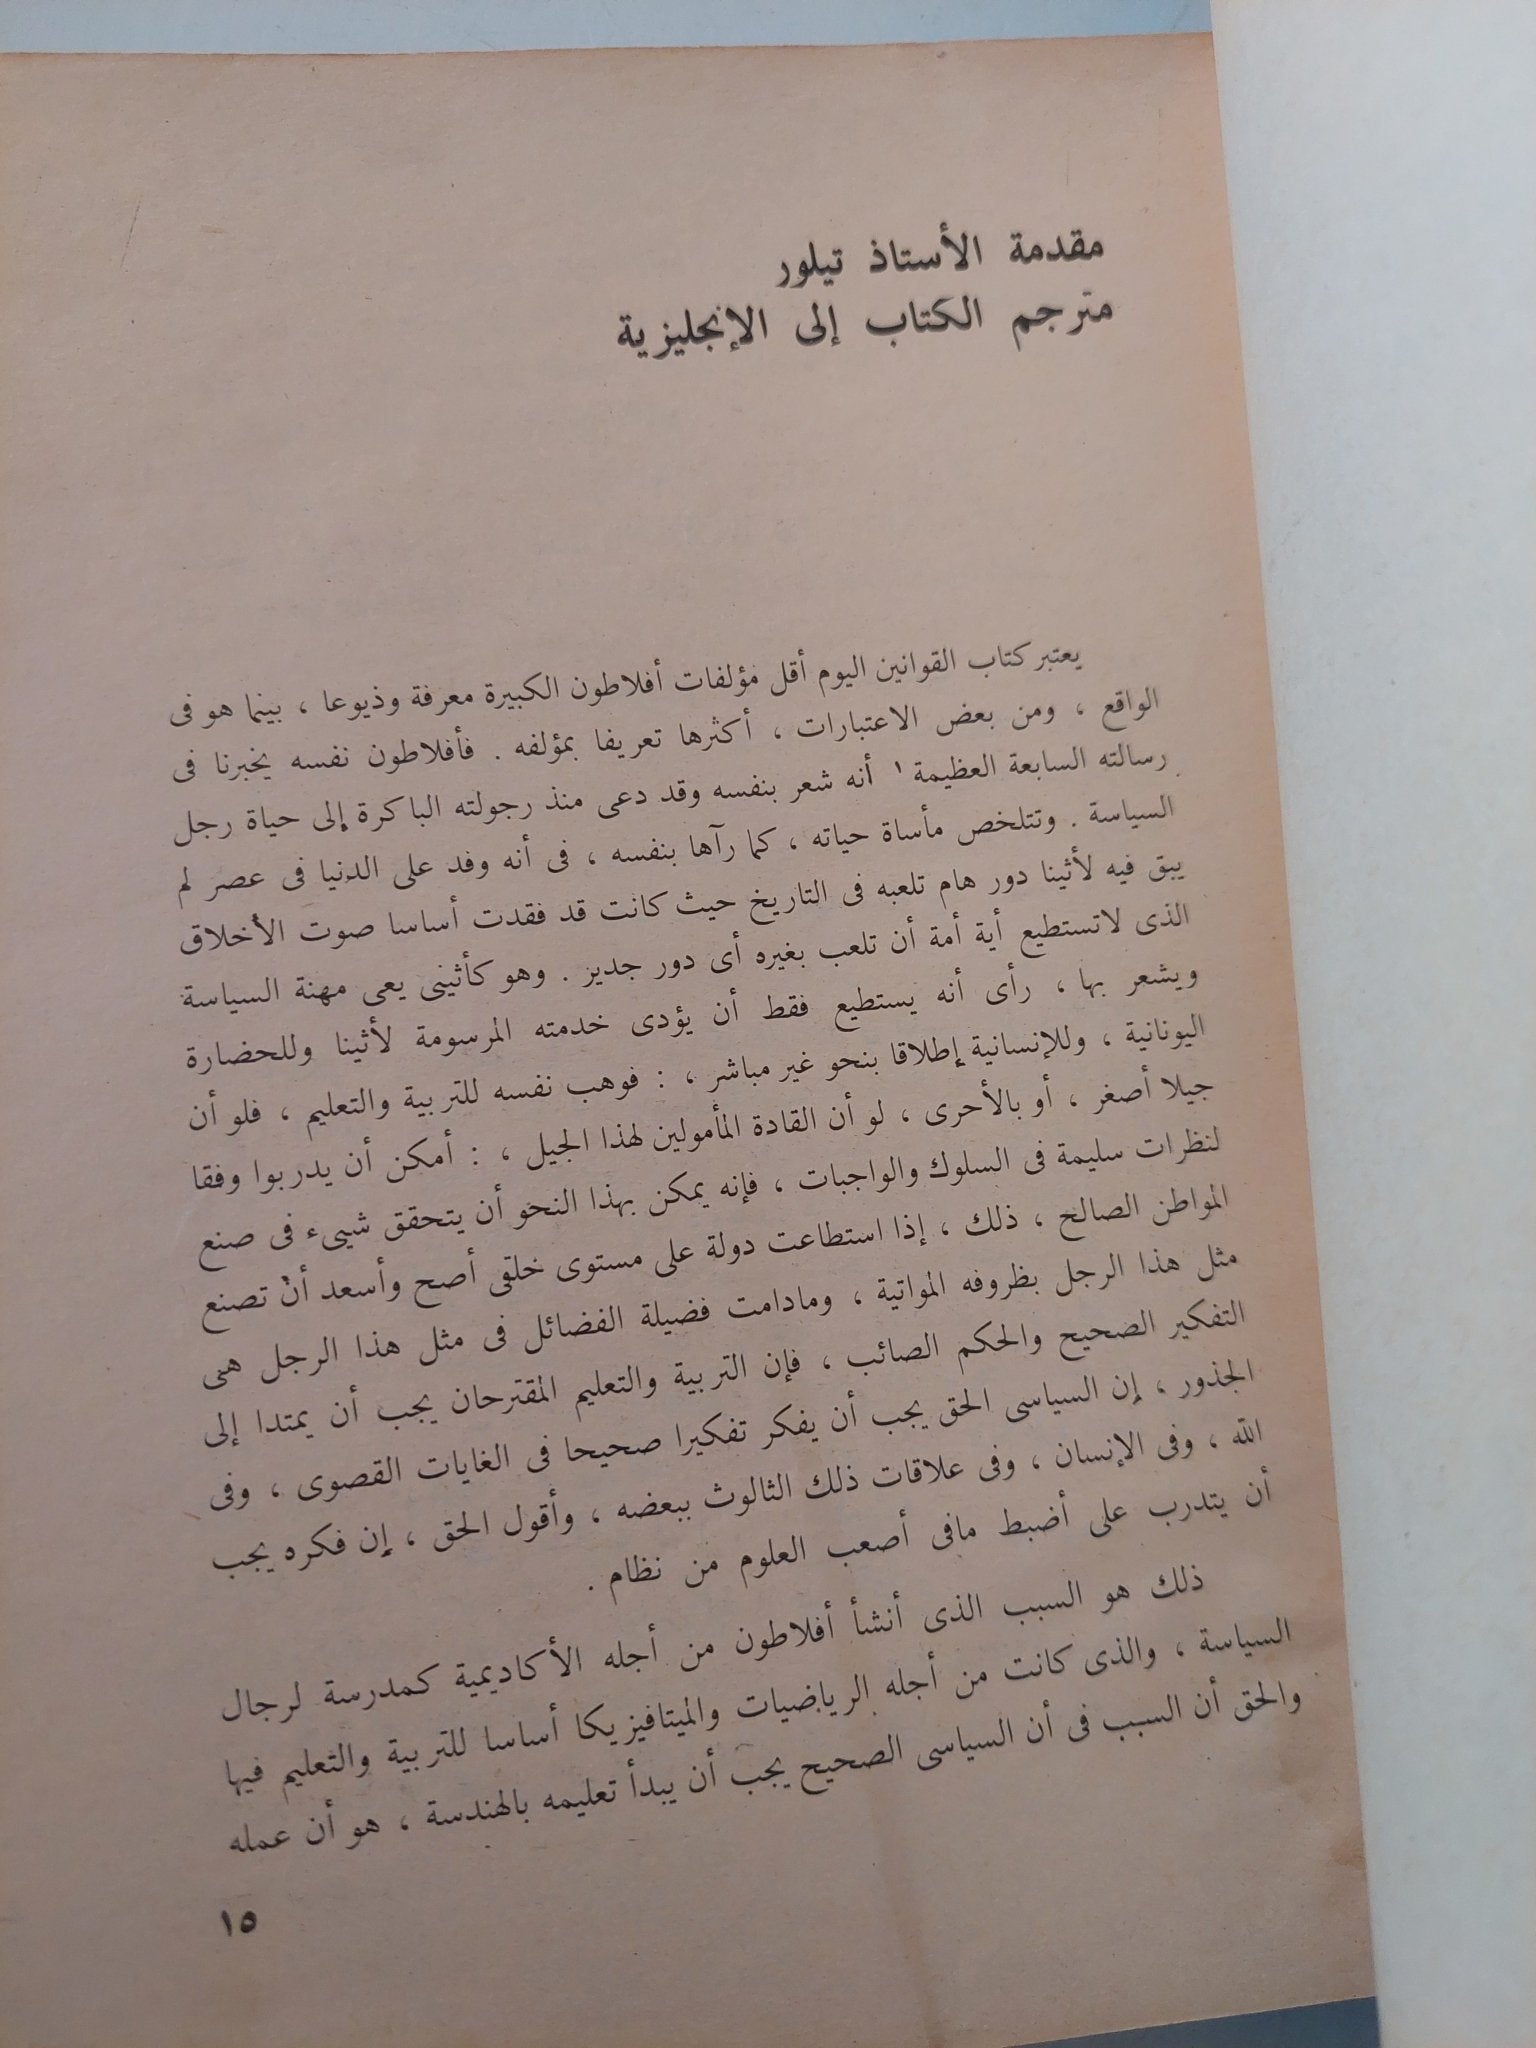 مقدمة الأستاذ تيلور
مترجم الكتاب إلى الإنجليزية
يعتبر كتاب القوانين اليوم أقل مؤلفات أفلاطون الكبيرة معرفة وذيوعا ، بينما هو فى
الواقع ، ومن بعض الاعتبارات ، أكثرها تعريفا بمؤلفه . فأفلاطون نفسه يخبرنا فى
رسالته السابعة العظيمة ١ أنه شعر بنفسه وقد دعى منذ رجولته الباكرة إلى حياة رجل
السياسة . وتتلخص مأساة حياته ، كما رآها بنفسه ، فى أنه وفد على الدنيا فى عصر لم
يبق فيه لأثينا دور هام تلعبه فى التاريخ حيث كانت قد فقدت أساسا صوت الأخلاق
الذى لاتستطيع أية أمة أن تلعب بغيره أى دور جدير . وهو كأثينى يعى مهنة السياسة
ويشعر بها ، رأى أنه يستطيع فقط أن يؤدى خدمته المرسومة لأثينا وللحضارة
اليونانية ، وللإنسانية إطلاقا بنحو غير مباشر ، : فوهب نفسه للتربية والتعليم ، فلو أن
جيلا أصغر ، أو بالأحرى ، لو أن القادة المأمولين لهذا الجيل ، : أمكن أن يدربوا وفقا
لنظرات سليمة فى السلوك والواجبات ، فإنه يمكن بهذا النحو أن يتحقق شيىء فى صنع
المواطن الصالح ، ذلك ، إذا استطاعت دولة على مستوى خلقى أصح وأسعد أن تصنع
مثل هذا الرجل بظروفه المواتية ، ومادامت فضيلة الفضائل فى مثل هذا الرجل هى
التفكير الصحيح والحكم الصائب ، فإن التربية والتعليم المقترحان يجب أن يمتدا إلى
الجذور ، إن السياسى الحق يجب أن يفكر تفكيرا صحيحا فى الغايات القصوى ، وفى
الله ، وفى الإنسان ، وفى علاقات ذلك الثالوث ببعضه ، وأقول الحق ، إن فكره يجب
أن يتدرب على أضبط مافى أصعب العلوم من نظام .
ذلك هو السبب الذى أنشأ أفلاطون من أجله الأكاديمية كمدرسة لرجال
السياسة ، والذى كانت من أجله الرياضيات والميتافيزيكا أساسا للتربية والتعليم فيها
والحق أن السبب فى أن السياسى الصحيح يجب أن يبدأ تعليمه بالهندسة ، هو أن عمله
١٥